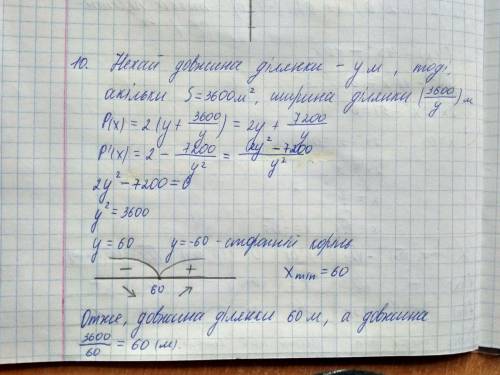 10. Нехай довжина ділянки - y м, тоді,
скільки S=3600м², ширина ділянки (3600/y) м
P(x) = 2(y + 3600/y) = 2y + 7200/y
P'(x) = 2 - 7200/y² = (2y² - 7200)/y²
2y² - 7200 = 0
y² = 3600
y = 60 y = -60 - сторонній корінь
- +
60
x min = 60
Отже, довжина ділянки 60 м, а довжина
3600/60 = 60 (м).